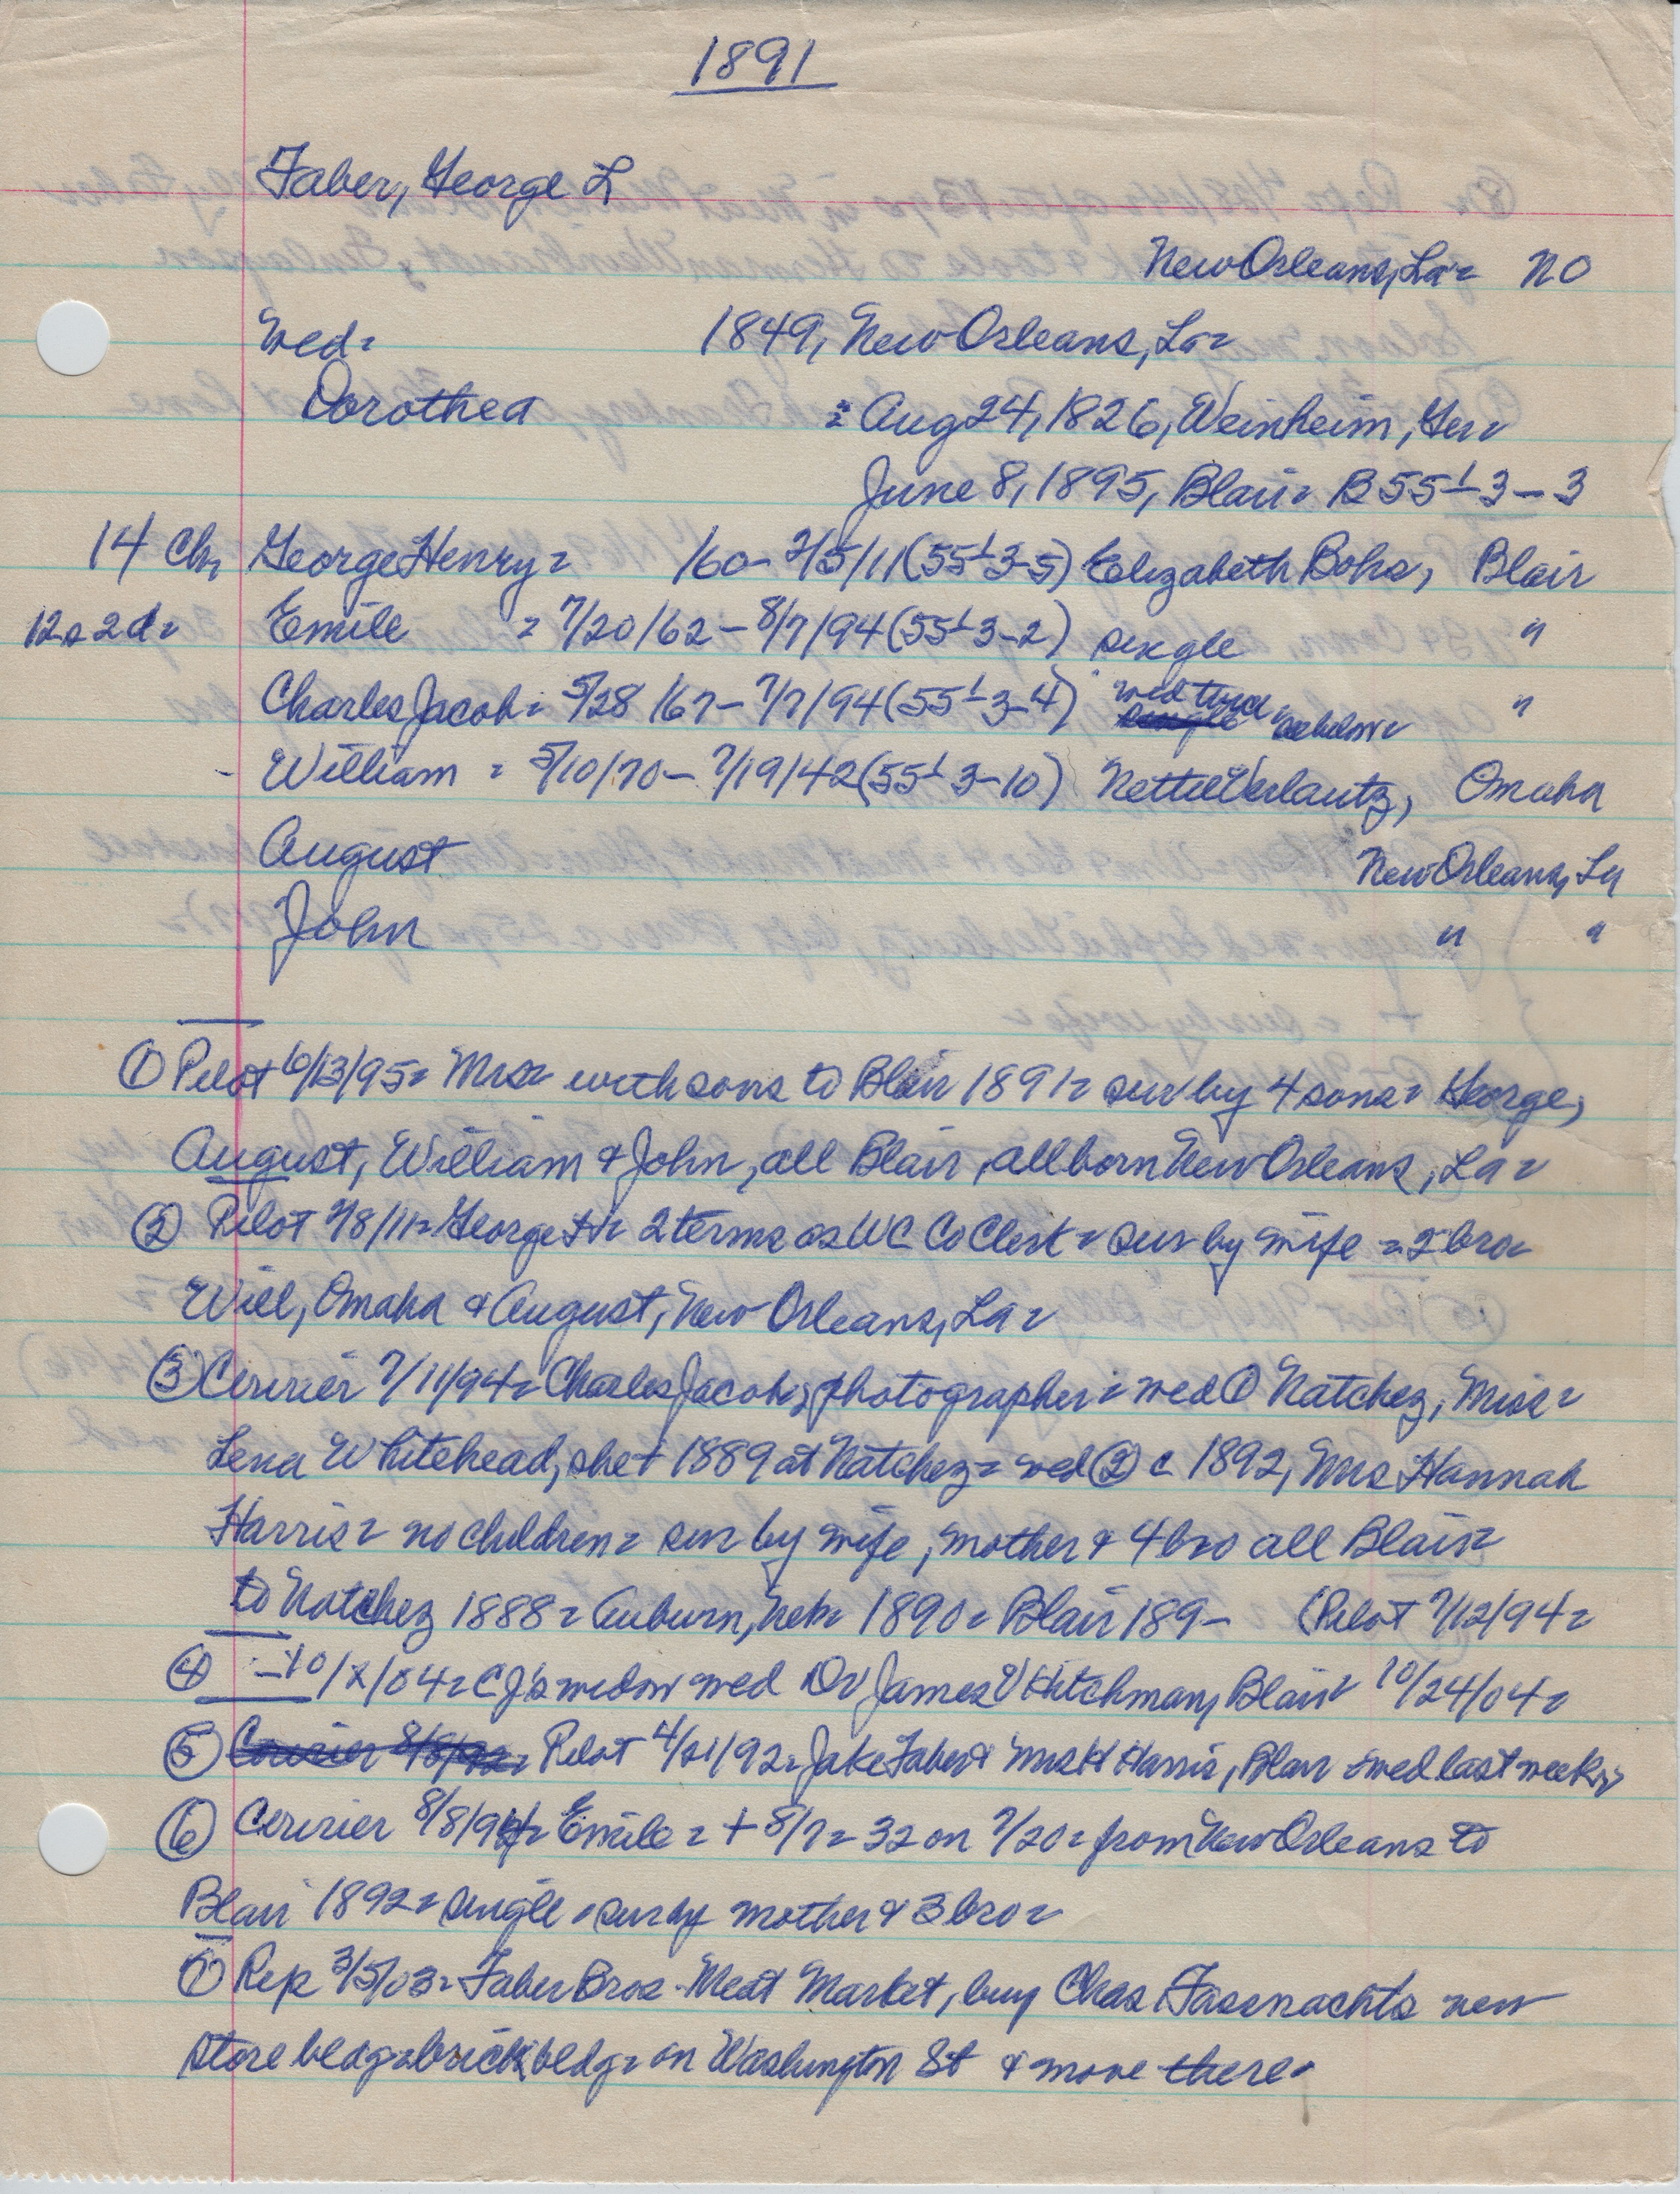 1891
Faber, George L
New Orleans, La= NO
Wed= 1849, New Orleans, La=
Dorothea = Aug 24, 1826, Weinheim, Ger=
June 8, 1895, Blair= B 55-1-3-3
14 Ch, George Henry= /60- 2/5/11 (55-1-3-5) Elizabeth Bohs, Blair
12s 2d= Emile = 7/20/62 - 8/7/94 (55-1-3-2) single "
Charles Jacob= 5/28/67 - 7/7/94 (55-1-3-4) wed twice see below= "
- William = 5/10/70 - 7/19/42 (55-1-3-10) Nettie Verlautz, Omaha
August New Orleans, La
John " "
① Pilot 6/13/95= Mrs= with sons to Blair 1891= sur by 4 sons= George,
August, William & John, all Blair, all born New Orleans, La=
② Pilot 2/8/11= George H= 2 terms as WC Co Clerk= sur by wife = 2 bro=
Will, Omaha & August, New Orleans, La=
③ Courier 7/11/94= Charles Jacob, photographer= wed ① Natchez, Miss=
Lena Whitehead, she + 1889 at Natchez= wed ② c 1892, Mrs Hannah
Harris= no children= sur by wife, mother & 4 bro all Blair=
to Natchez 1888= Auburn, Neb= 1890= Blair 189- (Pilot 7/12/94=
④ -10/x/04= CJ's widow wed Dr James V Hitchman, Blair= 10/24/04=
⑤ Courier 8/8/92= Pilot 4/21/92= Jake Faber & Mrs H Harris, Blair =wed last week=
⑥ Courier 8/8/94= Emile= + 8/7= 32 on 7/20= from New Orleans to
Blair 1892= single= sur by mother & 3 bro=
⑦ Rep 3/5/03= Faber Bros- Meat Market, buy Chas Fassnachts new
store bldg=brick bldg= on Washington St & move there=